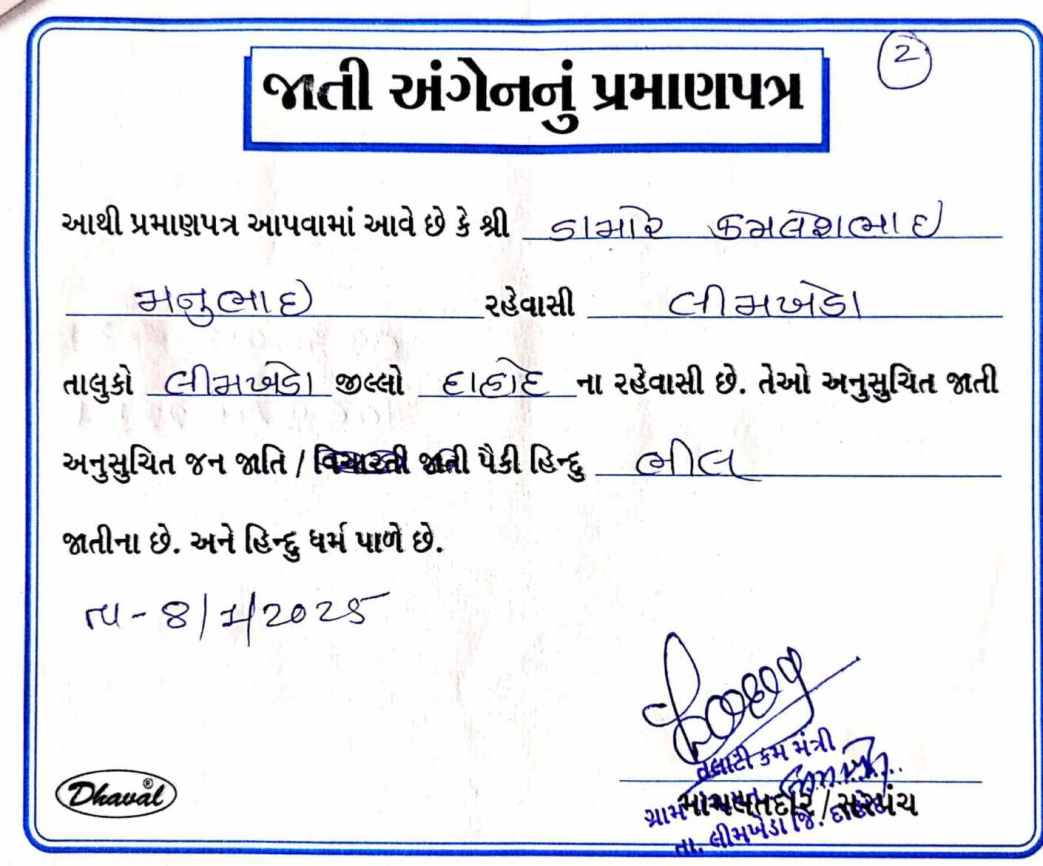 2
જાતી અંગેનનું પ્રમાણપત્ર
આથી પ્રમાણપત્ર આપવામાં આવે છે કે શ્રી ડામોર કમલેશભાઇ
મનુભાઇ રહેવાસી લીમખેડા
તાલુકો લીમખેડા જીલ્લો દાહોદ ના રહેવાસી છે. તેઓ અનુસુચિત જાતી
અનુસુચિત જન જાતિ / વિચારતી જાતી પૈકી હિન્દુ ભીલ
જાતીના છે. અને હિન્દુ ધર્મ પાળે છે.
તા - 8/1/2025
તલાટી કમ મંત્રી
ગ્રામ
મામલતદાર / સરપંચ
તા. લીમખેડા જિ. દાહોદ
Dhaval®